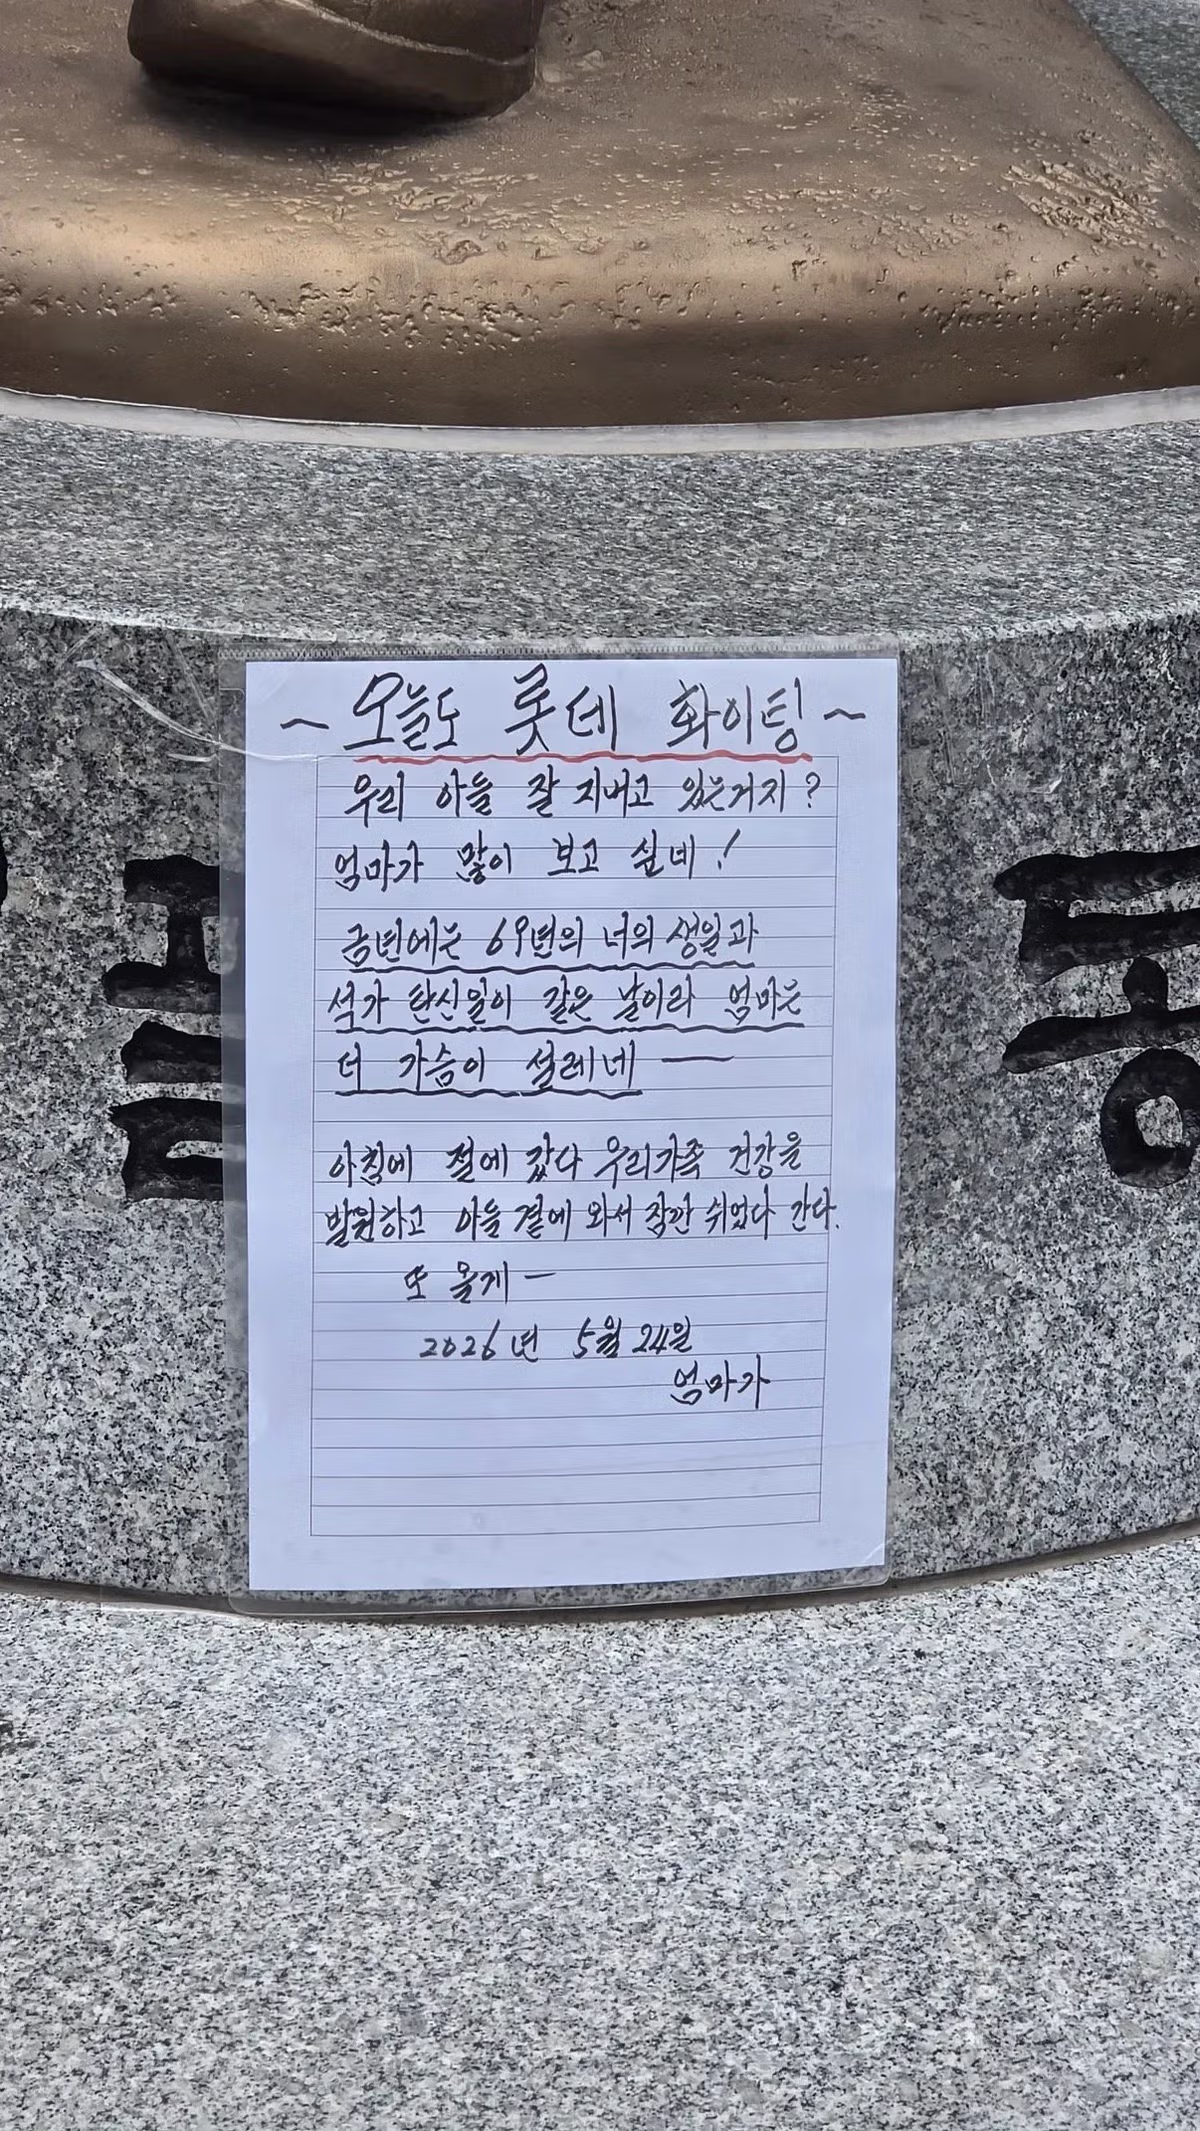 ~ 오늘도 롯데 화이팅 ~
우리 아들 잘 지내고 있는거지?
엄마가 많이 보고 싶네!
금년에는 69년의 너의 생일과
석가 탄신일이 같은 날이라 엄마는
더 가슴이 설레네 —
아침에 절에 갔다 우리가족 건강을
발원하고 아들 곁에 와서 잠깐 쉬었다 간다.
또 올게 —
2026년 5월 24일
엄마가
동